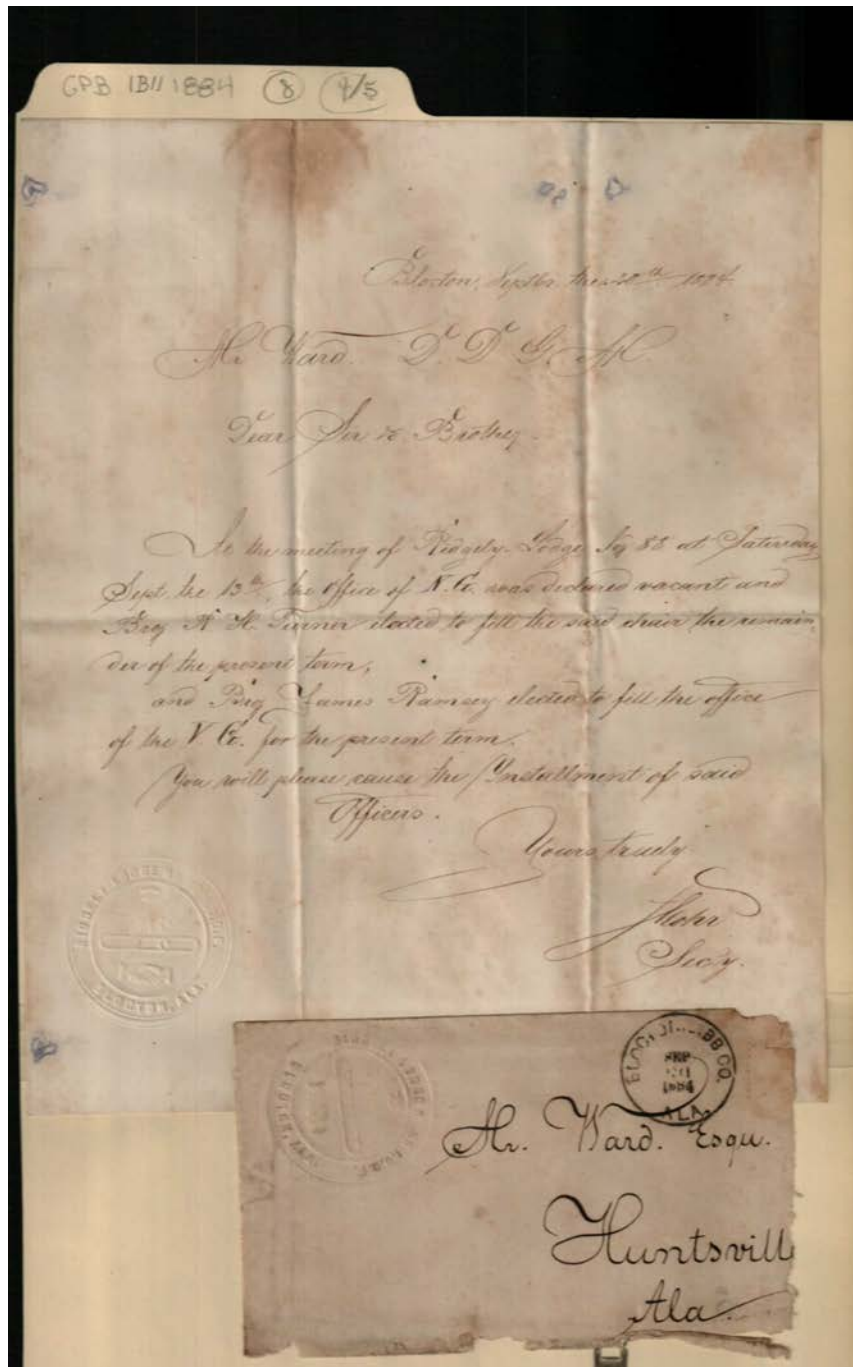 GPB 1B11 1884 8 4/5
Blocton, Septbr. the 20th 1884.
Mr. Ward. D. D. G. M.
Dear Sir & Brother.
At the meeting of Ridgely Lodge No 88 at Saturday
Sept. the 13th, the office of N.G. was declared vacant and
Bro H. Turner elected to fill the said chair the remain-
der of the present term,
and Bro James Ramsey elected to fill the office
of the V. G. for the present term.
You will please cause the Installment of said
Officers.
Yours truely
Secy.
RIDGELY LODGE
BLOCTON, ALA.
BLOCTON, BIBB CO.
SEP
20
1884
ALA.
Mr. Ward. Esqu.
Huntsvill
Ala